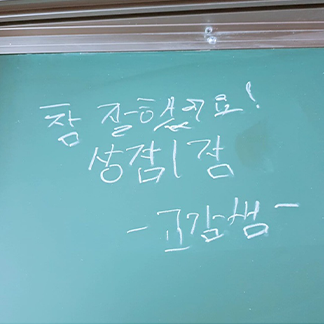 참 잘했어요!
상점 1점
- 교감쌤 -